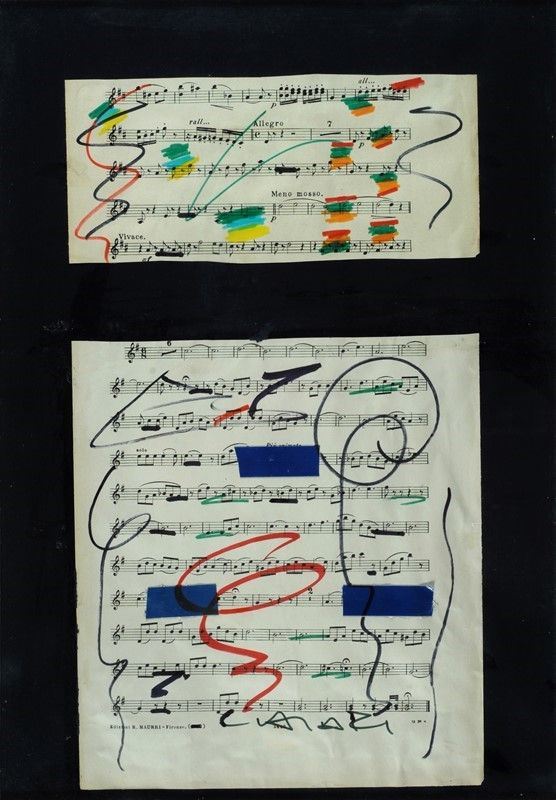 all...
rall... Allegro 7
p
Meno mosso.
p
Vivace.
6
solo Più animato
2
CHIARI
Edizioni R. MAURRI - Firenze. (